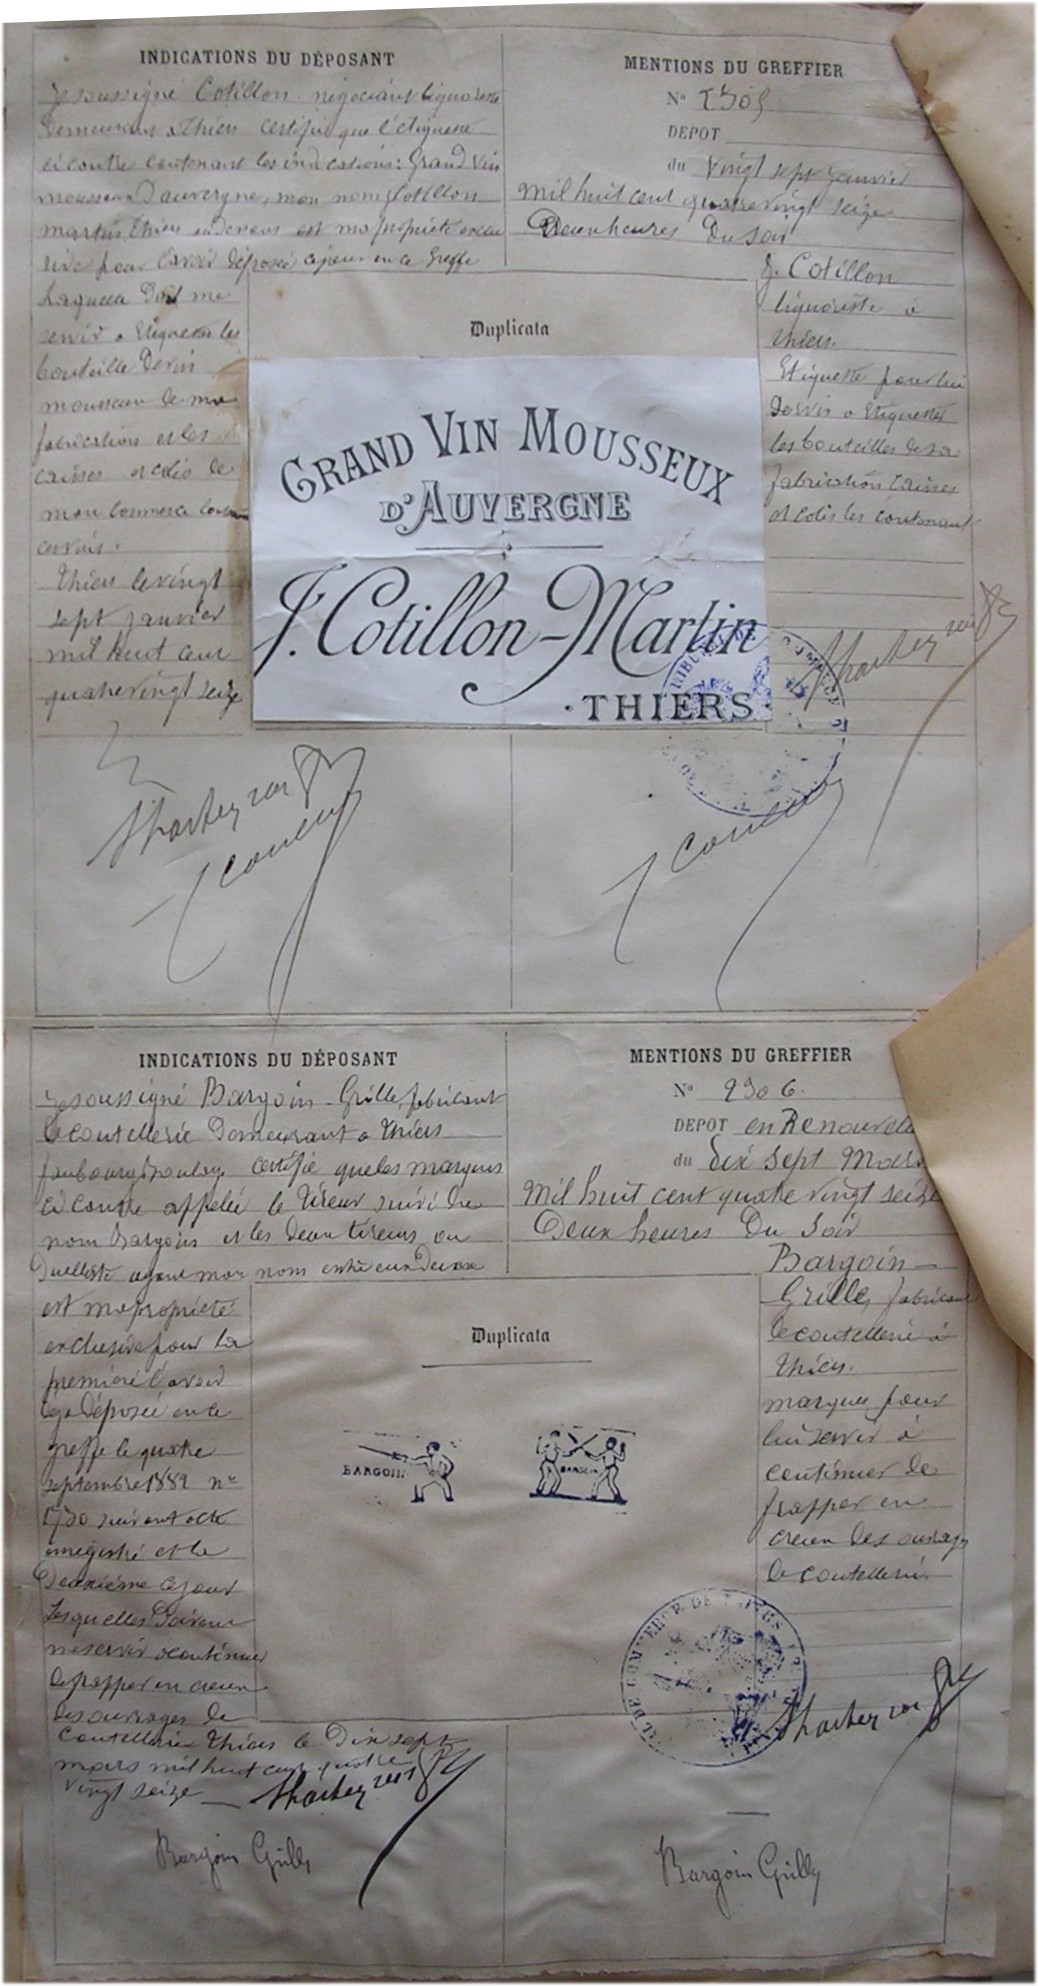 INDICATIONS DU DÉPOSANT
Je soussigné Cotillon négociant liquoriste
Demeurant a Thiers certifie que l'étiquette
ci contre contenant les indications: Grand Vin
mousseux D'auvergne, mon nom Cotillon
martin Thiers est ma propriété exclu
sive pour l'avoir déposée ce jour en ce Greffe
Laquelle Doit me
servir a Etiqueter les
bouteille De vin
mousseux de ma
fabrication et les
caisses et colis de
mon commerce
ces vins.
Thiers le vingt
sept janvier
mil huit cent
quatrevingt seize
MENTIONS DU GREFFIER
N°
DEPOT
du Vingt sept janvier
Mil huit cent quatrevingt seize
Deux heures Du soir
J. Cotillon
liquoriste à
Thiers.
Etiquette pour lui
servir a Etiqueter
les bouteilles de sa
fabrication Caisses
et colis les contenant
Duplicata
GRAND VIN MOUSSEUX
D'AUVERGNE
J. Cotillon-Martin
THIERS
INDICATIONS DU DÉPOSANT
Je soussigné Bargoin-Grille, fabricant
de coutellerie Demeurant a Thiers
faubourg certifie que les marques
ci contre appelée le tireur suivi du
nom Bargoin et les deux tireurs ou
Duelliste ayant mon nom entre eux Deux
est ma propriété
exclusive pour la
première l'avoir
déja Déposée en ce
greffe le quatre
septembre 1882 n°
1730 suivant acte
enregistré et la
Deuxième ce jour
Lesquelles Doivent
me servir a continuer
de frapper en creux
des ouvrages de
coutellerie Thiers le Dix sept
mars mil huit cent quatre
vingt seize
Bargoin Grille
MENTIONS DU GREFFIER
N° 2306.
DEPOT en Renouvell
du Dix sept Mars
Mil huit cent quatre vingt seize
Deux heures Du Soir
Bargoin-
Grille, fabricant
de coutellerie à
Thiers.
marques pour
lui servir à
continuer de
frapper en
creux des ouvrages
de coutellerie
Duplicata
BARGOIN
BARGOIN
Bargoin Grille